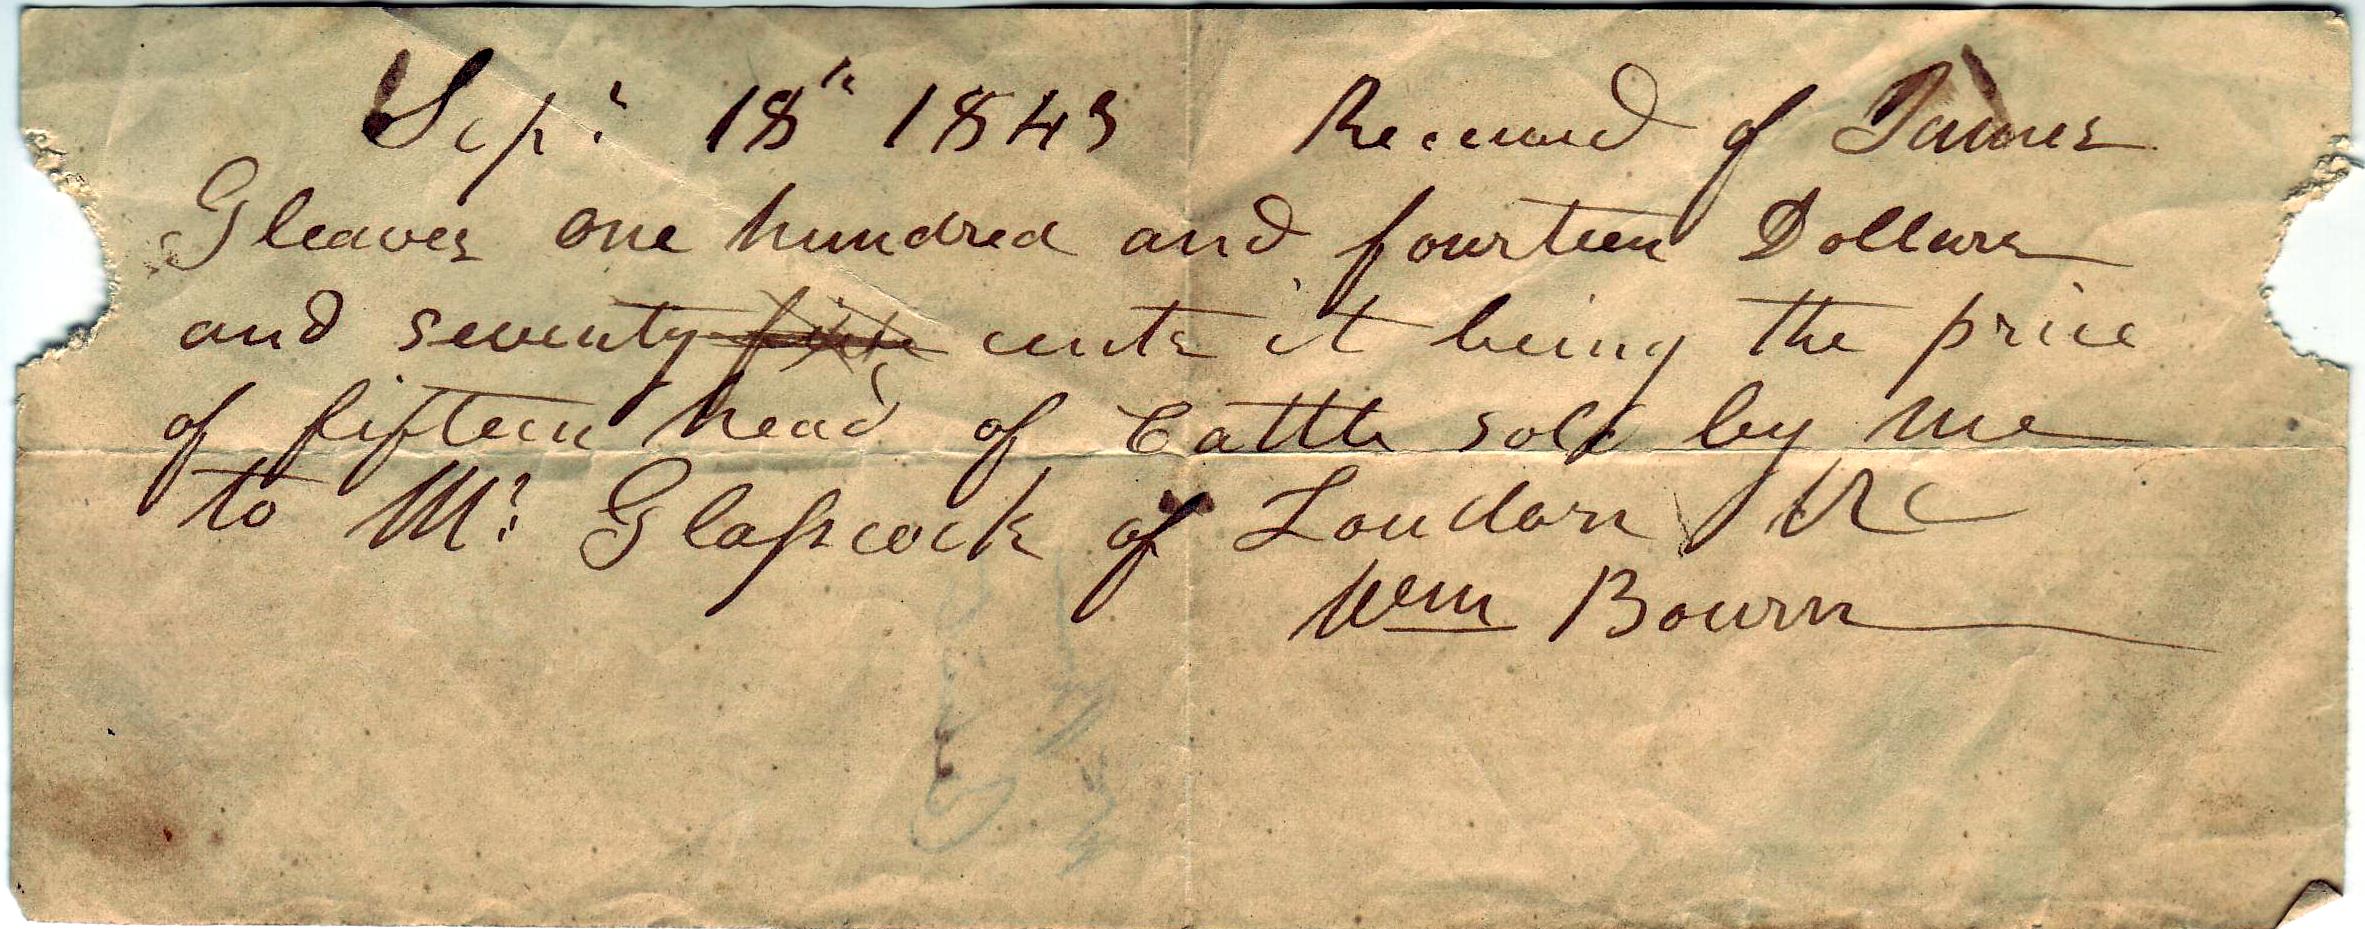 Sepr 18th 1843 Received of James
Gleaves one hundred and fourteen Dollars
and seventy five cents it being the price
of fifteen head of Cattle sold by me
to Mr Glasscock of Loudon &c
Wm Bourn